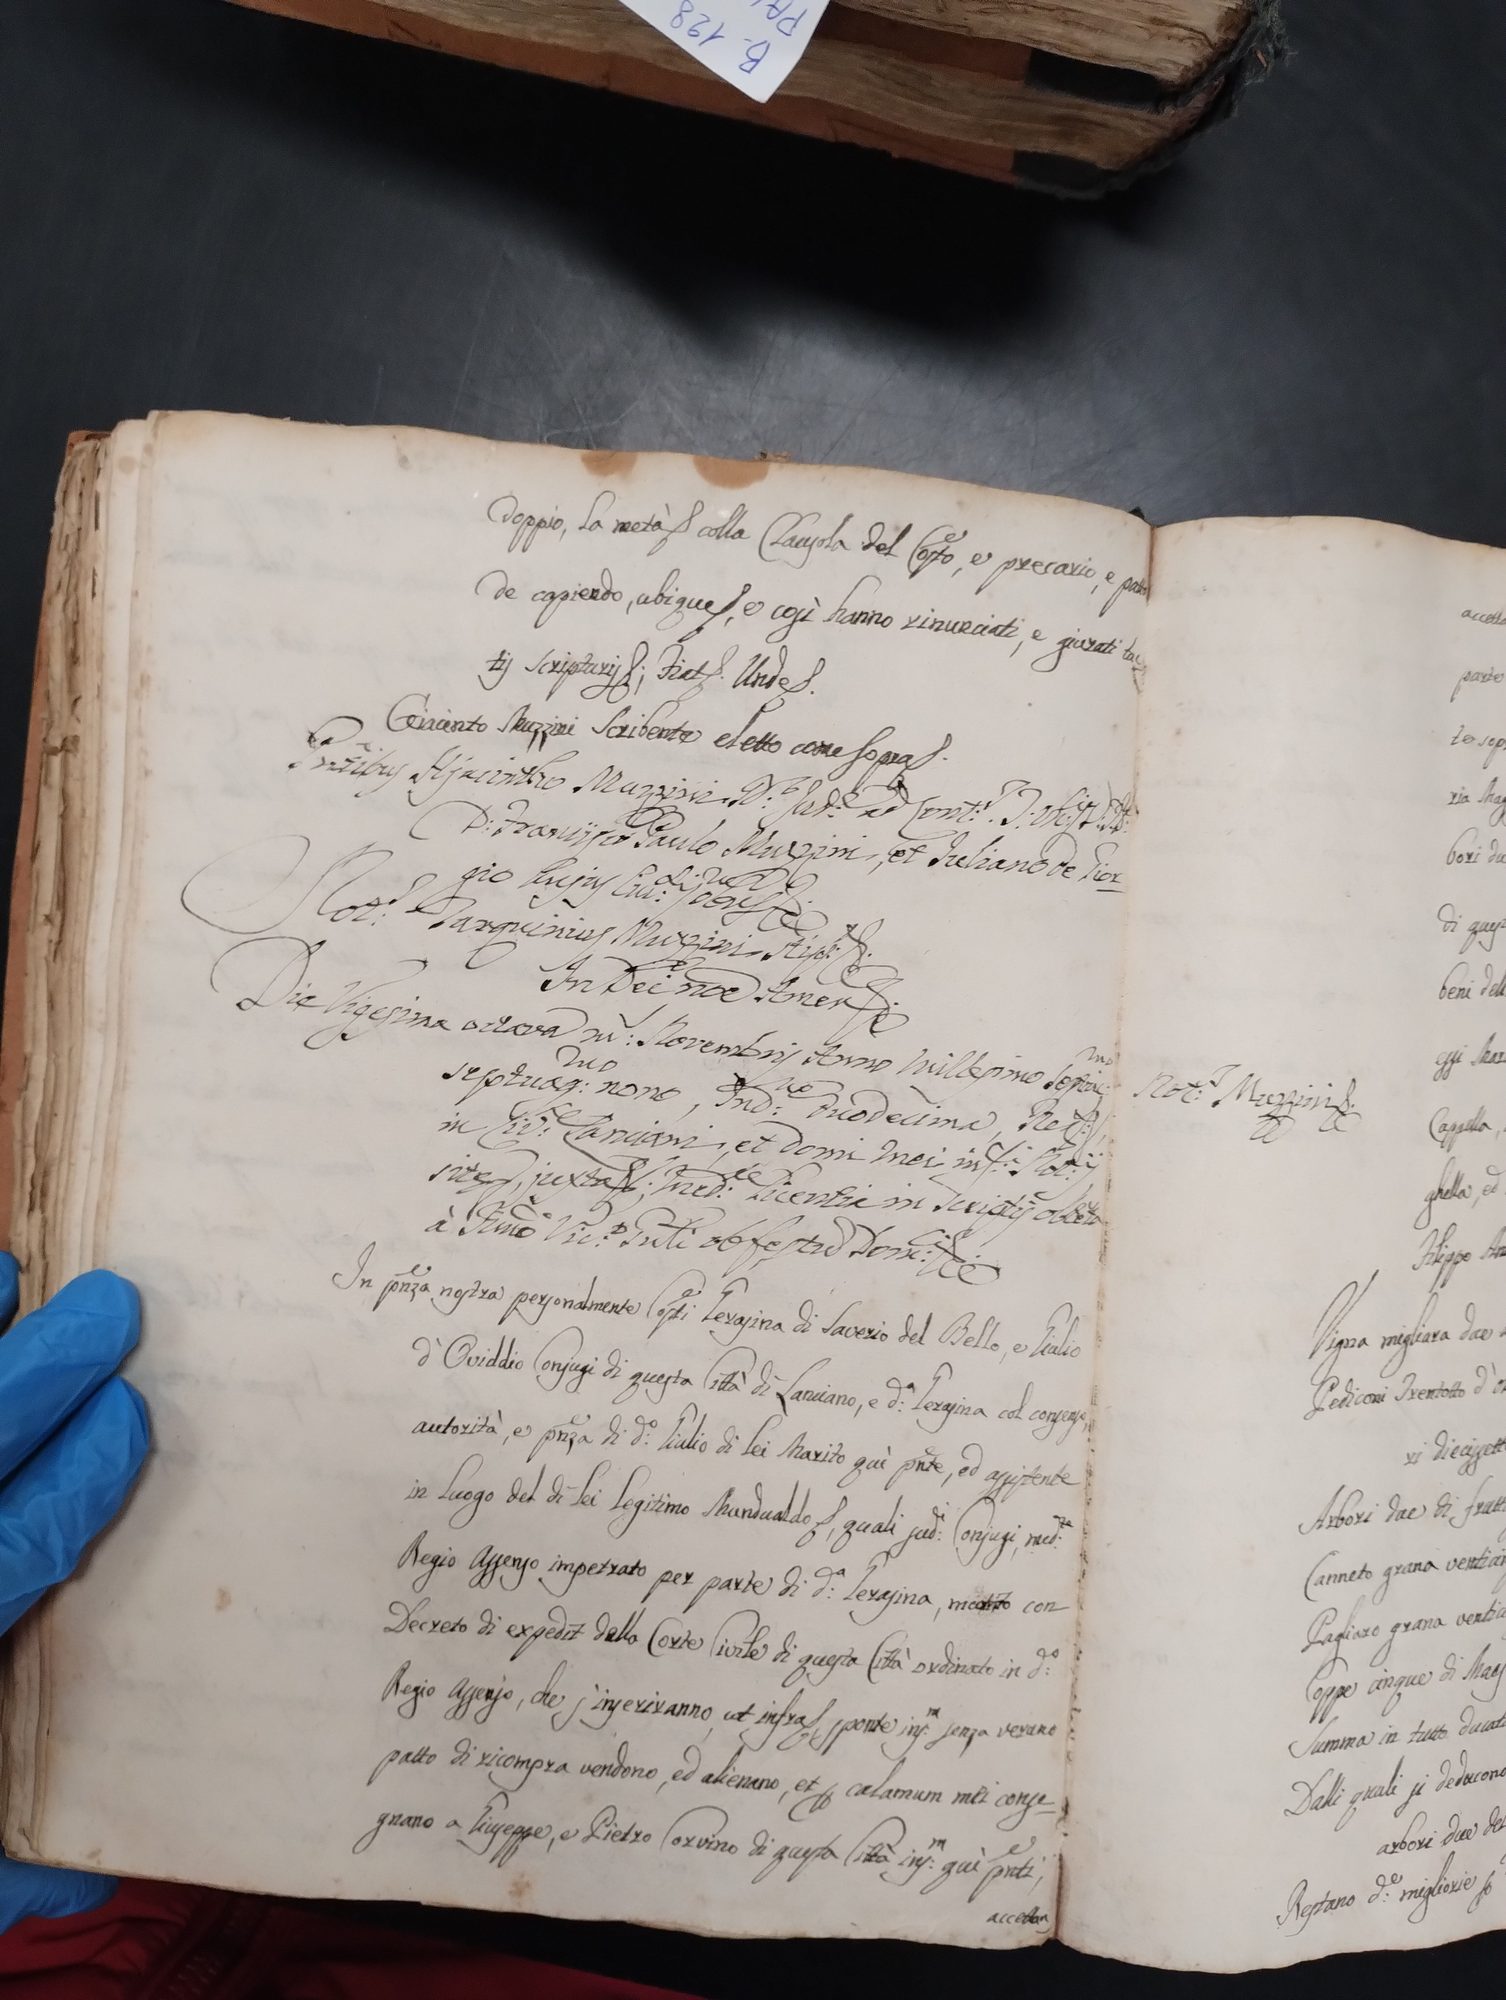 B. 128
doppio, la metà colla Clausola del Cos̃to, e precario, e patto
de capiendo, ubique, e così hanno rinunciati, e giurati tac
tis scripturis; Fiat. Unde.
Giacinto Muzzini Scribente eletto come sopra.
Hyacintho Muzzini
D: Francisco Paulo Muzzini, et Juliano de Gior-
gio hujus Civ:
Not: Tarquinius Muzzini
In Dei noe Amen
Die Vigesima octava m: Novembris Anno Millesimo Septin:
septuag: nono, Ind: duodecima,
in Civ: Lanciani, et domi mei inf: Not:ij
site, juxta; Med: Licentia in Scriptis obtenta
à Vic: ob festum
In pñza nostra personalmente Cos̃ti Teresina di Saverio del Bello, e Giulio
d'Oviddio Conjugi di questa Città di Lanciano, e d:a Teresina col consenso,
autorità, e pñza di d:o Giulio di lei Marito quì pñte, ed assistente
in luogo del di lei legitimo Mundualdo, quali sud:i Conjugi, med:te
Regio Assenso impetrato per parte di d:a Teresina, con
Decreto di expedit della Corte Civile di questa Città ordinato in d:o
Regio Assenso, che s'inseriranno, ut infra, sponte ins:m senza verano
patto di ricompra vendono, ed alienano, et calamum mei conse-
gnano a Giuseppe, e Pietro Corvino di questa Città ins:m quì pñti,
accettan
accetta
parte
te sopr
ria Mag
bori du
di quest
beni dell
Not:r Muzzini
Cappella,
ghella, ed
Filippo An
Vigna migliara due
Pediconi Trentotto d'o
ri diecisett
Arbori due di frutt
Canneto grana venticin
Pagliaro grana venti
Coppe cinque di Mag
Summa in tutto ducati
Dalli quali si deducono
arbori due de
Restano d:e migliorie